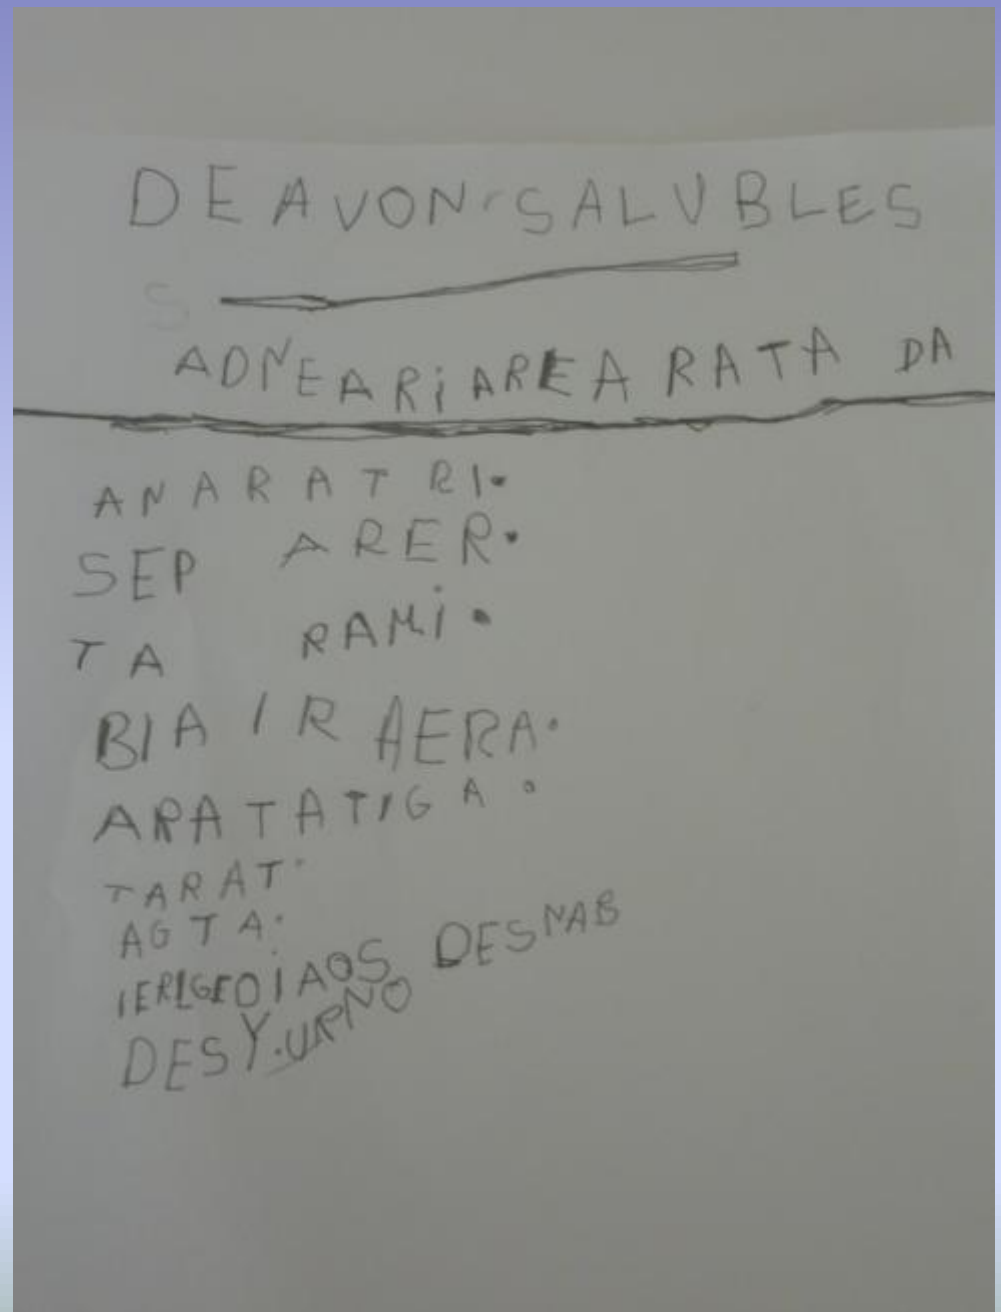 DEAVON SALUBLES
S
ADNEARIAREA RATA DA
ANARATRI.
SEP ARER.
TA RAMI.
BIA IR AERA.
ARATATIGA.
TARAT.
AGTA.
IERLGEOIAOS DESNAB
DESY.URNO